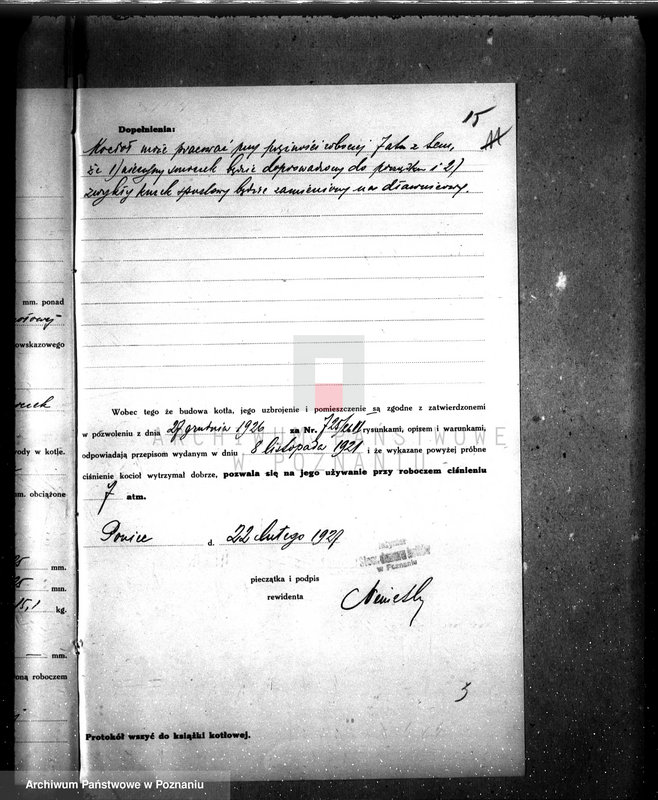 15
Dopełnienia:
Kocioł może pracować przy prężności roboczej 7 atm z tem,
że 1) wierzchny będzie doprowadzony do porządku i 2)
zwykły kurek spustowy będzie zamieniony na dławnicowy.
mm. ponad
owskazowego
rody w kotle.
m. obciążone
mm.
25 mm.
15,1 kg.
— mm.
oną roboczem
Wobec tego że budowa kotła, jego uzbrojenie i pomieszczenie są zgodne z zatwierdzonemi
w pozwoleniu z dnia 27 grudnia 1926 za Nr. rysunkami, opisem i warunkami,
ARCHIWUM PAŃSTWOWE
odpowiadają przepisom wydanym w dniu 8 listopada 1921 i że wykazane powyżej próbne
W POZNANIU
ciśnienie kocioł wytrzymał dobrze, pozwala się na jego używanie przy roboczem ciśnieniu
7 atm.
d. 22 Lutego 1927
w Poznaniu
pieczątka i podpis
rewidenta
Protokół wszyć do książki kotłowej.
Archiwum Państwowe w Poznaniu